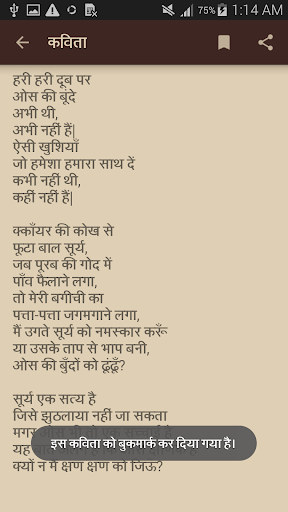 75% 1:14 AM
कविता
हरी हरी दूब पर
ओस की बूंदे
अभी थी,
अभी नहीं हैं|
ऐसी खुशियाँ
जो हमेशा हमारा साथ दें
कभी नहीं थी,
कहीं नहीं हैं|
क्काँयर की कोख से
फूटा बाल सूर्य,
जब पूरब की गोद में
पाँव फैलाने लगा,
तो मेरी बगीची का
पत्ता-पत्ता जगमगाने लगा,
मैं उगते सूर्य को नमस्कार करूँ
या उसके ताप से भाप बनी,
ओस की बुँदों को ढूंढूँ?
सूर्य एक सत्य है
जिसे झुठलाया नहीं जा सकता
मगर
इस कविता को बुकमार्क कर दिया गया है।
क्यों न मैं क्षण क्षण को जिऊँ?